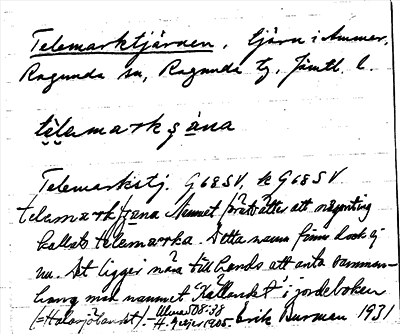 Telemarktjärnen, tjärn i Ammer,
Ragunda sn, Ragunda tg, Jämtl. l.
telamarkşäna
Telemarkstj. G 68 SV, k G 68 SV
telamark/şäna Namnet förutsätter att någonting
kallats telemarka. Detta namn finns dock ej
nu. Det ligger nära till hands att anta samman-
hang med namnet Kallandet i jordeboken
H. Geijer 1905. Erik Burman 1931